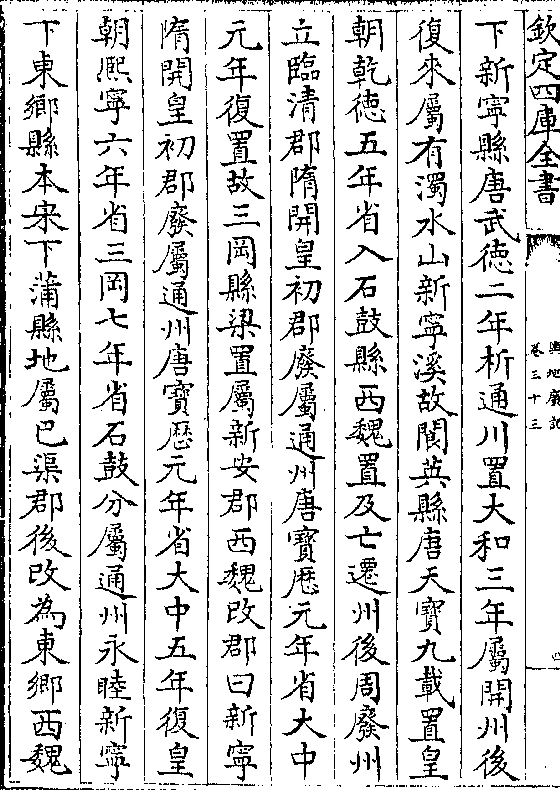 欽定四庫全書
輿地廣記
卷三十三
下新寧縣唐武德二年析通川置大和三年屬開州後
復來屬有濁水山新寧溪故閬英縣唐天寶九載置皇
朝乾德五年省入石鼓縣西魏置及亡遷州後周廢州
立臨清郡隋開皇初郡廢屬通州唐寶歴元年省大中
元年復置故三岡縣梁置屬新安郡西魏改郡曰新寧
隋開皇初郡廢屬通州唐寶歴元年省大中五年復皇
朝熈寧六年省三岡七年省石鼓分屬通州永睦新寧
下東鄉縣本宋下蒲縣地屬巴渠郡後改為東鄉西魏